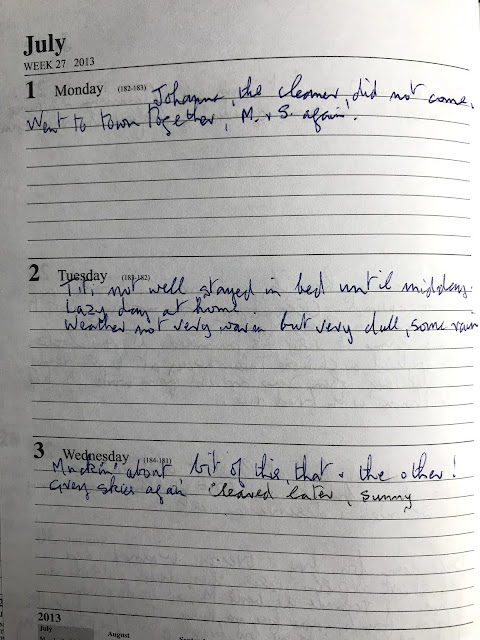 July
WEEK 27 2013
1 Monday (182-183) Johanna, the cleaner, did not come.
Went to town together, M. & S. again.
2 Tuesday (183-182)
Titi not well stayed in bed until midday.
Lazy day at home.
Weather not very warm but very dull, some rain
3 Wednesday (184-181)
Muckin' about bit of this, that & the other!
Grey skies again cleared later, sunny
2013
July
August